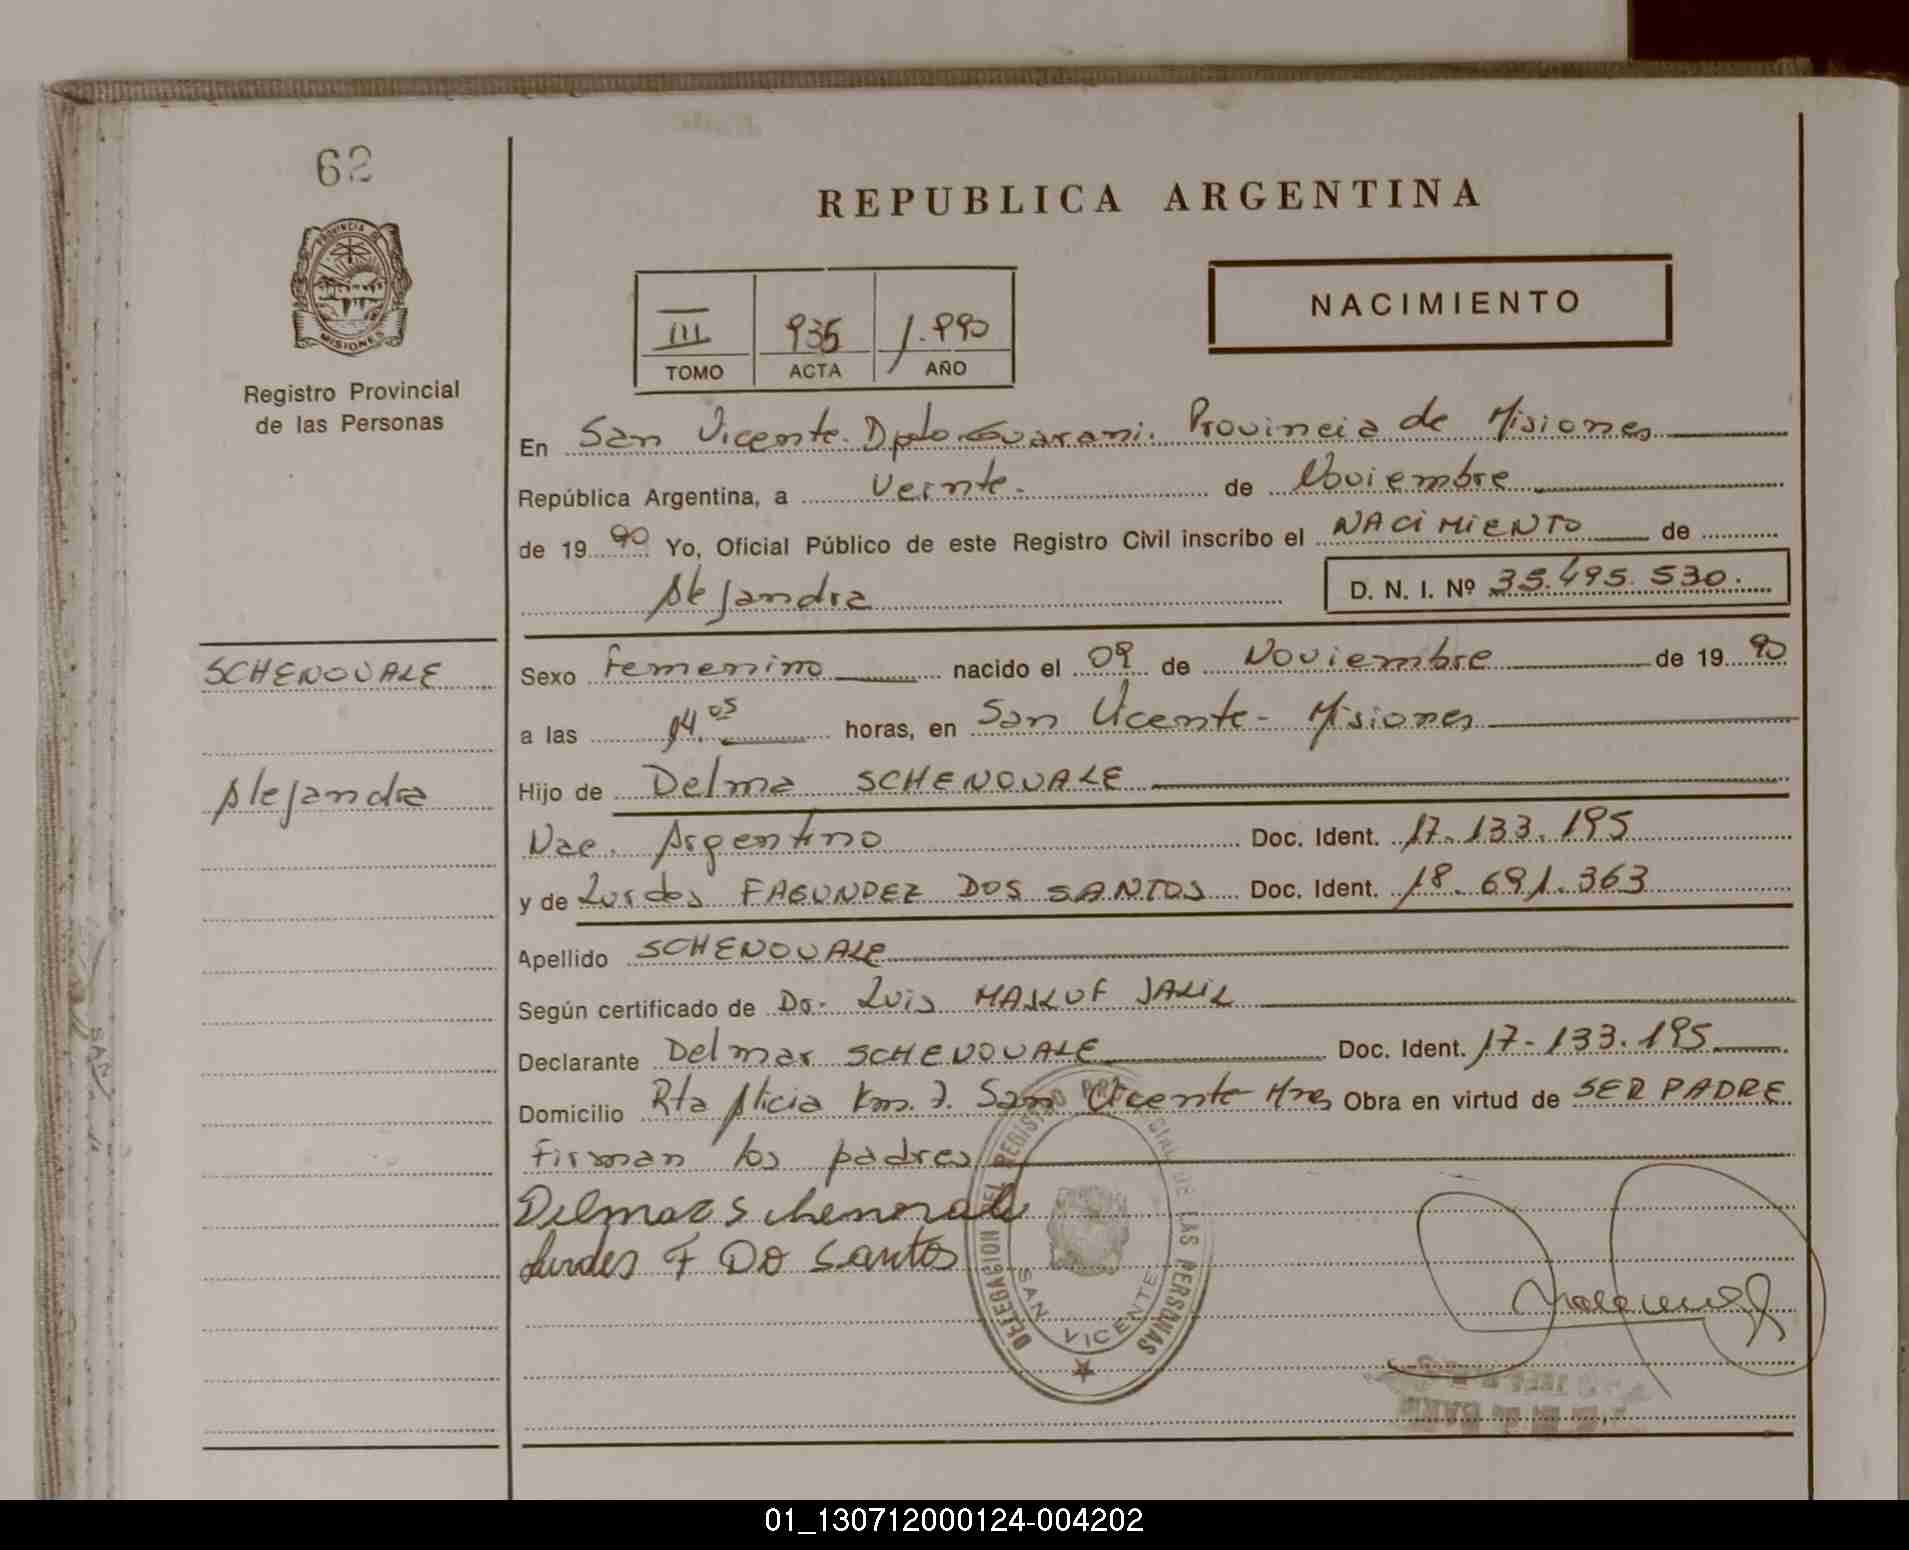 62
REPUBLICA ARGENTINA
PROVINCIA DE
MISIONES
Registro Provincial
de las Personas
III 935 1.990
TOMO ACTA AÑO
NACIMIENTO
En San Vicente. Dpto. Guarani. Provincia de Misiones
República Argentina, a veinte. de Noviembre
de 19 90 Yo, Oficial Público de este Registro Civil inscribo el NACIMIENTO de
Alejandra D. N. I. Nº 35.495.530.
SCHENOVALE
Alejandra
Sexo Femenino nacido el 09 de Noviembre de 19 90
a las 14.05 horas, en San Vicente - Misiones
Hijo de Delma SCHENOVALE
Nac. Argentino Doc. Ident. 17.133.195
y de Lurdes FAGUNDEZ DOS SANTOS Doc. Ident. 18.691.363
Apellido SCHENOVALE
Según certificado de Dr. Luis JALIL
Declarante Delmar SCHENOVALE Doc. Ident. 17-133.195
Domicilio Rta Alicia Km. 7. San Vicente Mnes Obra en virtud de SER PADRE
Firman los padres
Delmar Schenovale
Lurdes F Do Santos
DELEGACION DEL REGISTRO PROVINCIAL DE LAS PERSONAS
SAN VICENTE
01_130712000124-004202